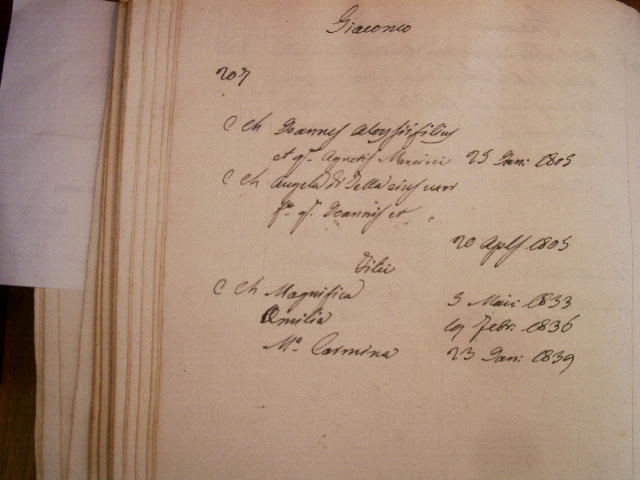 Giacomo
207
C Ch Joannes Aloysii filius
et qm. Agnetis Mancini 25 Jan: 1805
C Ch Angela di Lella eius uxor
fa. qm. Joannis et
20 Aplis 1805
Filii
C Ch Magnifica 3 Maii 1833
Emilia 19 Febr: 1836
Ma. Carmina 23 Jan: 1839